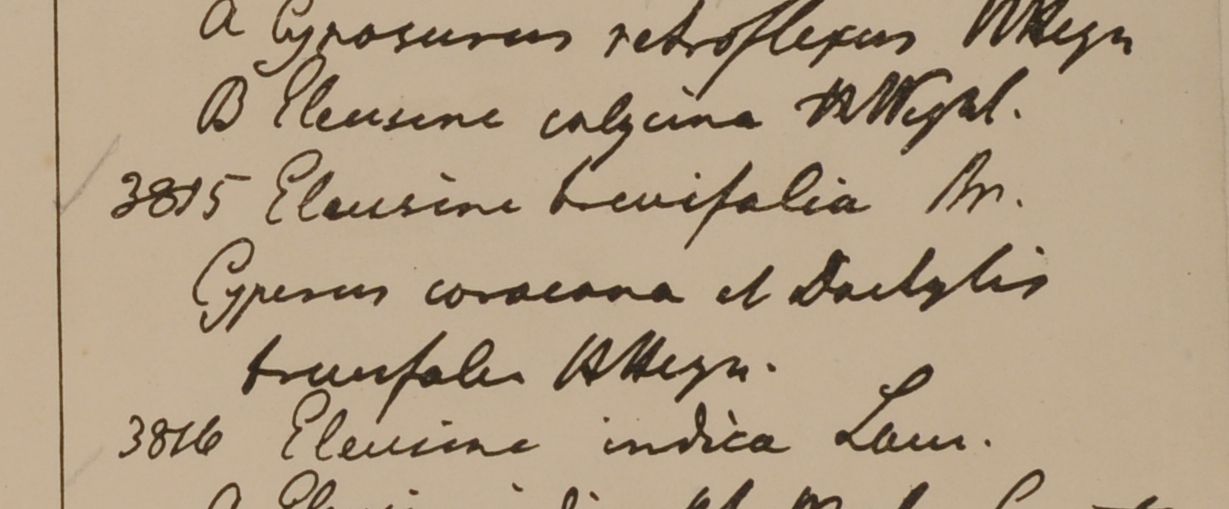 A Cynosurus retroflexus HHeyn
B Eleusine calycina HWight.
3815 Eleusine brevifolia Br.
Cyperus coracana et Dactylis
brevifolia HHeyn.
3816 Eleusine indica Lam.